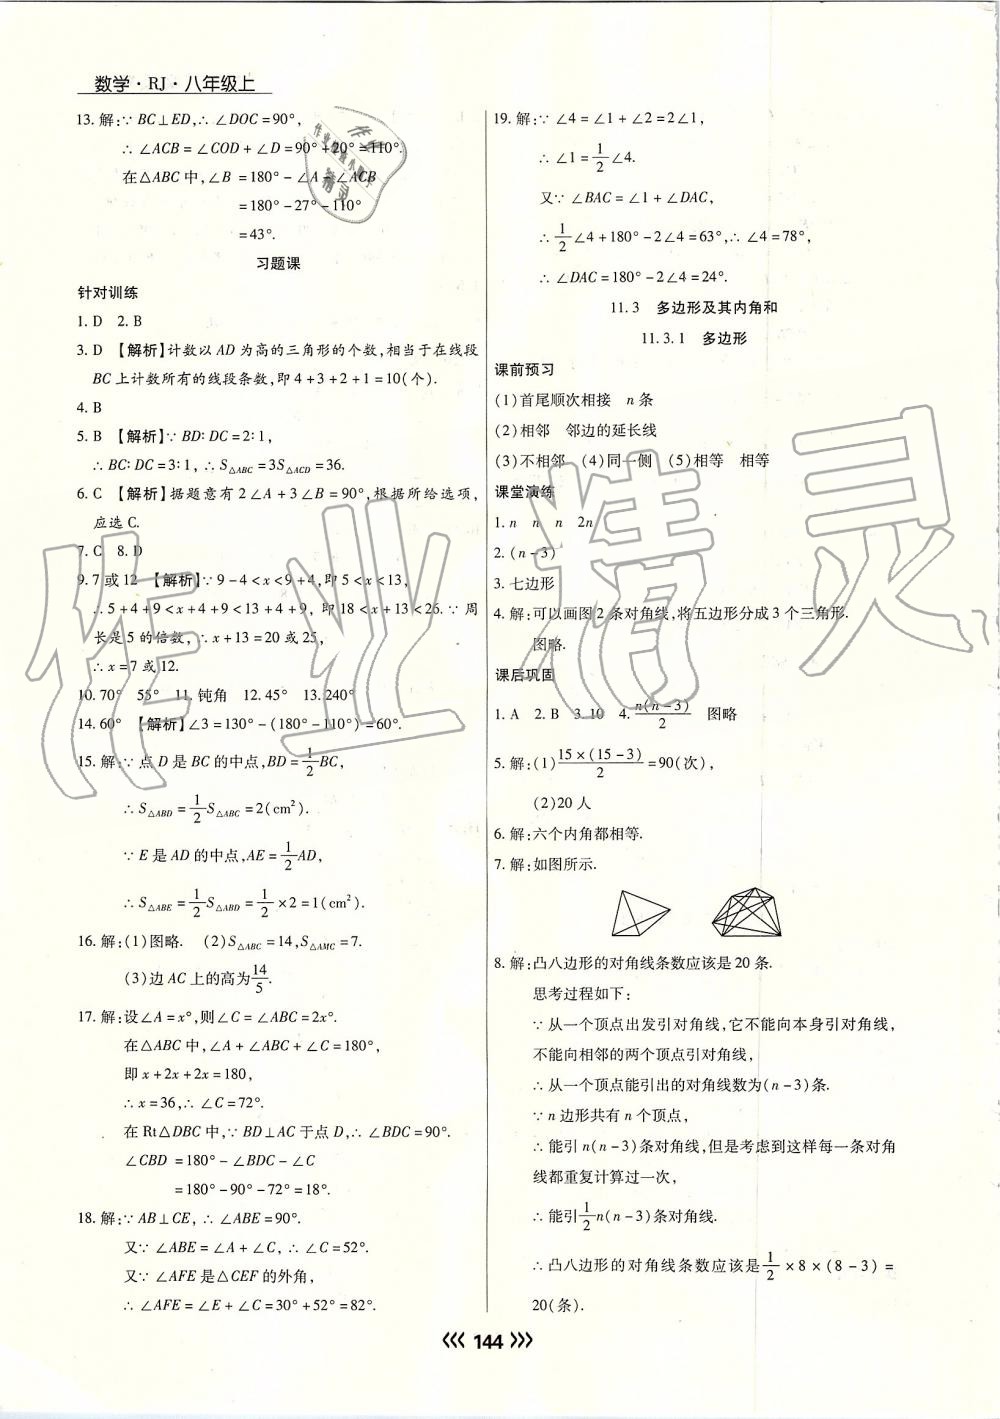 数学·RJ·八年级上
13. 解:∵ BC⊥ED,∴ ∠DOC=90°,
∴ ∠ACB=∠COD+∠D=90°+20°=110°.
在△ABC中,∠B =180°-∠A-∠ACB
=180°-27°-110°
=43°.
习题课
针对训练
1. D 2. B
3. D 【解析】计数以AD为高的三角形的个数,相当于在线段
BC上计数所有的线段条数,即4+3+2+1=10(个).
4. B
5. B 【解析】∵ BD∶DC=2∶1,
∴ BC∶DC=3∶1, ∴ S△ABC=3S△ACD=36.
6. C 【解析】据题意有2∠A+3∠B=90°,根据所给选项,
应选C.
7. C 8. D
9. 7或12 【解析】∵ 9-4<x<9+4,即5<x<13,
∴ 5+4+9<x+4+9<13+4+9, 即18<x+13<26. ∵ 周
长是5的倍数,∴ x+13=20或25,
∴ x=7或12.
10. 70° 55° 11. 钝角 12. 45° 13. 240°
14. 60° 【解析】∠3=130°-(180°-110°)=60°.
15. 解:∵ 点D是BC的中点,BD=1/2BC,
∴ S△ABD=1/2S△ABC=2(cm²).
∵ E是AD的中点,AE=1/2AD,
∴ S△ABE=1/2S△ABD=1/2×2=1(cm²).
16. 解:(1)图略. (2)S△ABC=14,S△AMC=7.
(3)边AC上的高为14/5.
17. 解:设∠A=x°,则∠C=∠ABC=2x°.
在△ABC中,∠A+∠ABC+∠C=180°,
即x+2x+2x=180,
∴ x=36,∴ ∠C=72°.
在Rt△DBC中,∵ BD⊥AC于点D,∴ ∠BDC=90°.
∠CBD =180°-∠BDC-∠C
=180°-90°-72°=18°.
18. 解:∵ AB⊥CE, ∴ ∠ABE=90°.
又∵ ∠ABE=∠A+∠C, ∴ ∠C=52°.
又∵ ∠AFE是△CEF的外角,
∴ ∠AFE=∠E+∠C=30°+52°=82°.
19. 解:∵ ∠4=∠1+∠2=2∠1,
∴ ∠1=1/2∠4.
又∵ ∠BAC=∠1+∠DAC,
∴ 1/2∠4+180°-2∠4=63°,∴ ∠4=78°,
∴ ∠DAC=180°-2∠4=24°.
11.3 多边形及其内角和
11.3.1 多边形
课前预习
(1)首尾顺次相接 n条
(2)相邻 邻边的延长线
(3)不相邻 (4)同一侧 (5)相等 相等
课堂演练
1. n n n 2n
2. (n-3)
3. 七边形
4. 解:可以画图2条对角线,将五边形分成3个三角形.
图略.
课后巩固
1. A 2. B 3. 10 4. n(n-3)/2 图略
5. 解:(1)15×(15-3)/2=90(次),
(2)20人
6. 解:六个内角都相等.
7. 解:如图所示.
8. 解:凸八边形的对角线条数应该是20条.
思考过程如下:
∵ 从一个顶点出发引对角线,它不能向本身引对角线,
不能向相邻的两个顶点引对角线,
∴ 从一个顶点能引出的对角线数为(n-3)条.
∵ n边形共有n个顶点,
∴ 能引n(n-3)条对角线,但是考虑到这样每一条对角
线都重复计算过一次,
∴ 能引1/2n(n-3)条对角线.
∴ 凸八边形的对角线条数应该是1/2×8×(8-3)=
20(条).
《《 144 》》
作业精灵